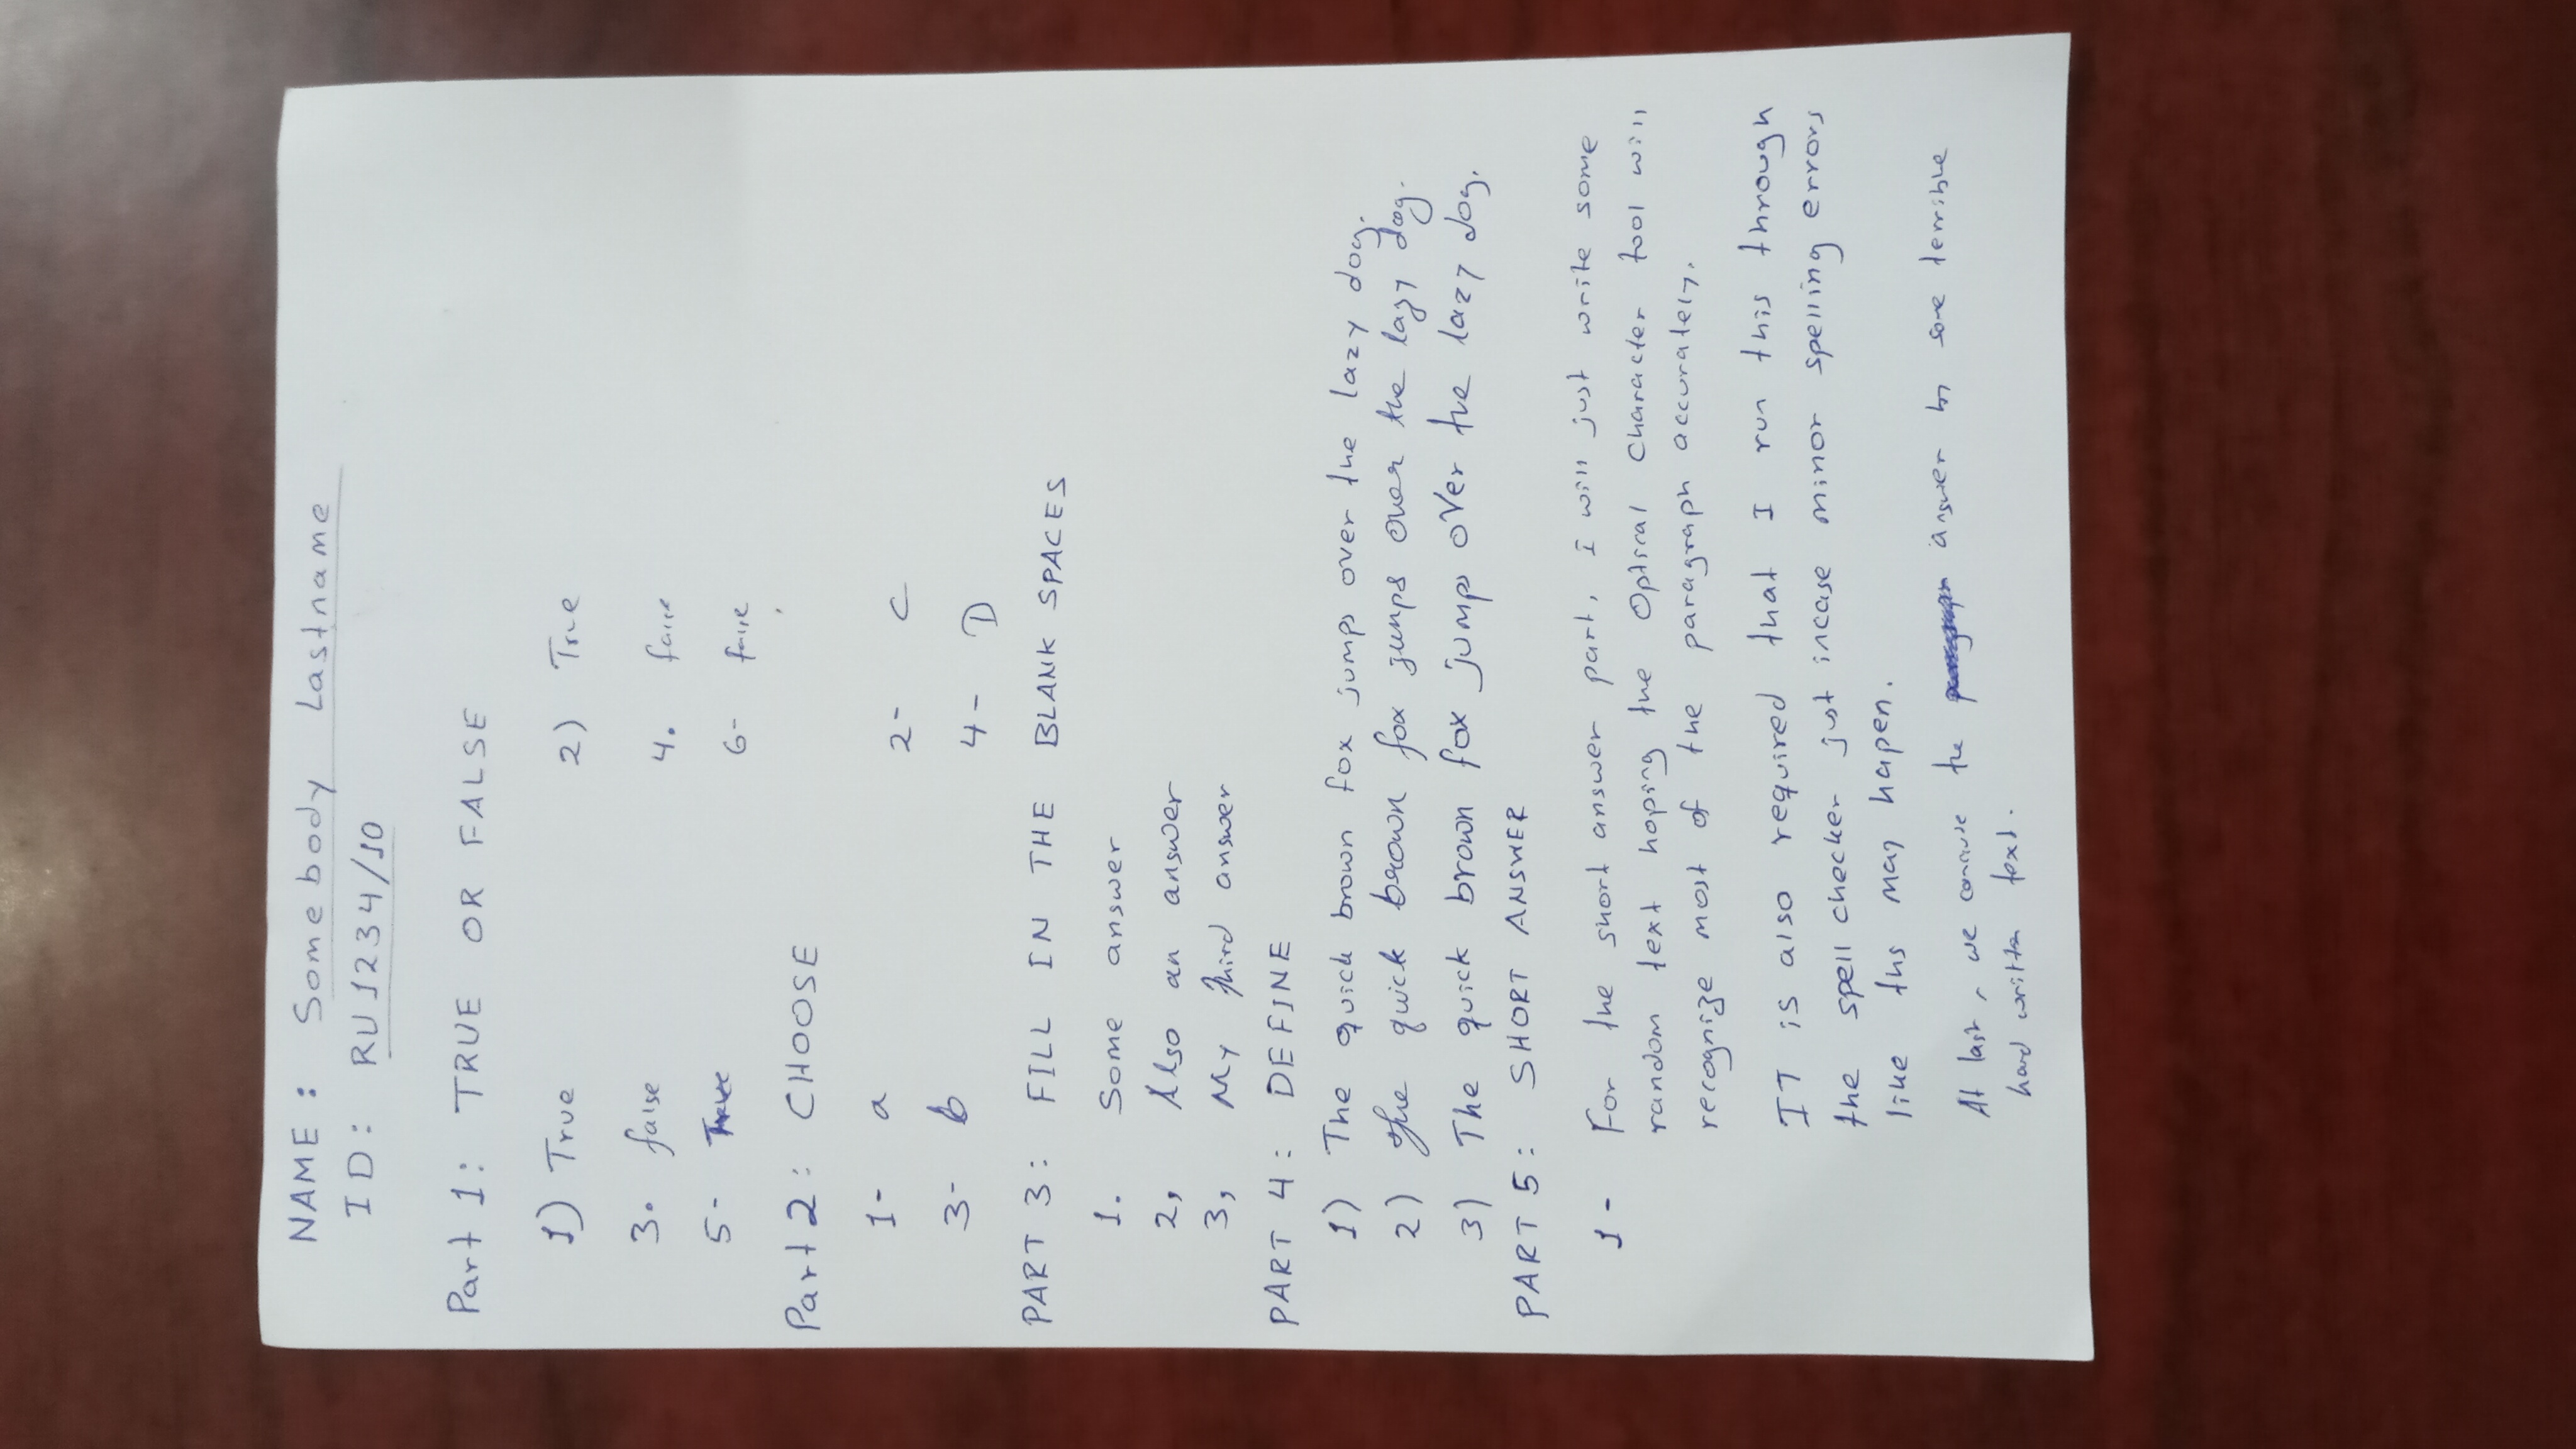 NAME: Somebody Lastname
ID: RU1234/10
Part 1: TRUE OR FALSE
1) True 2) True
3. false 4. false
5- True 6- false
Part 2: CHOOSE
1- a 2- C
3- b 4- D
PART 3: FILL IN THE BLANK SPACES
1. Some answer
2, Also an answer
3, My third answer
PART 4: DEFINE
1) The quick brown fox jumps over the lazy dog.
2) The quick brown fox jumps over the lazy dog.
3) The quick brown fox jumps over the lazy dog.
PART 5: SHORT ANSWER
1- For the short answer part, I will just write some
random text hoping the Optical Character tool will
recognize most of the paragraph accurately.
IT is also required that I run this through
the spell checker just incase minor spelling errors
like ths may hapen.
At last, we conclude the answer by some terrible
hand written text.